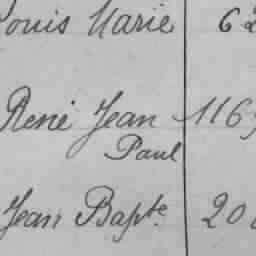 Louis Marie 62
René Jean 116
Paul
Jean Bapte. 20